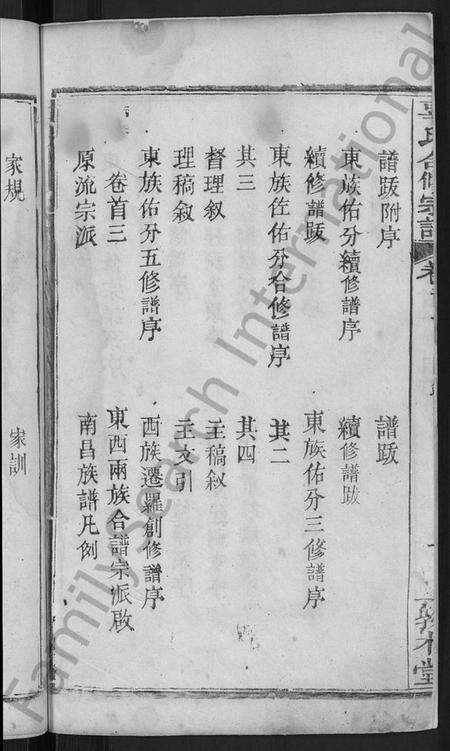 氏合修宗譜
譜跋附序
譜跋
東族佑分續修譜序
續修譜跋
續修譜跋
東族佑分三修譜序
東族佐佑分合修譜序
其二
其三
其四
督理敘
主稿敘
理稿敘
主文引
東族佑分五修譜序
西族遷羅創修譜序
卷首三
東西兩族合譜宗派啟
原流宗派
南昌族譜凡例
家規
家訓
FamilySearch International